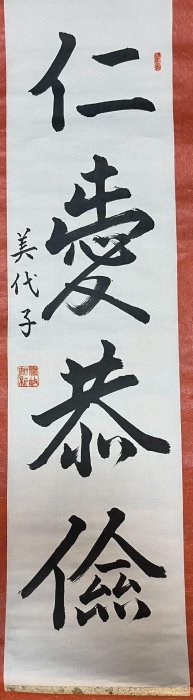 仁愛恭儉
美代子